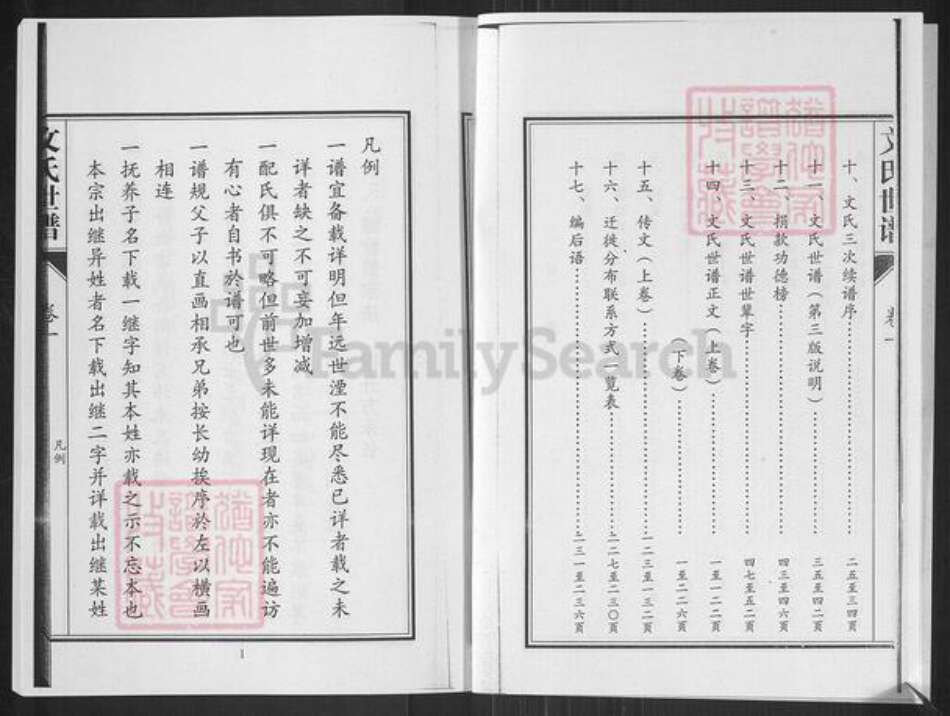 文氏世谱
十、文氏三次续谱序……二五至三四页
十一、文氏世谱（第三版说明）……三五至四二页
十二、捐款功德榜……四三至四六页
十三、文氏世谱世辈字……四七至五二页
十四、文氏世谱正文（上卷）……一至一二二页
（下卷）……一至二二六页
十五、传文（上卷）……一二三至一三二页
十六、迁徙分布联系方式一览表……二二七至二三〇页
十七、编后语……二三一至二三六页
凡例
一谱宜备载详明但年远世湮不能尽悉已详者载之未
详者缺之不可妄加增减
一配氏俱不可略但前世多未能详现在者亦不能遍访
有心者自书於谱可也
一谱规父子以直画相承兄弟按长幼挨序於左以横画
相连
一抚养子名下载一继字知其本姓亦载之示不忘本也
本宗出继异姓者名下载出继二字并详载出继某姓
文氏世谱
卷一
凡例
1
FamilySearch